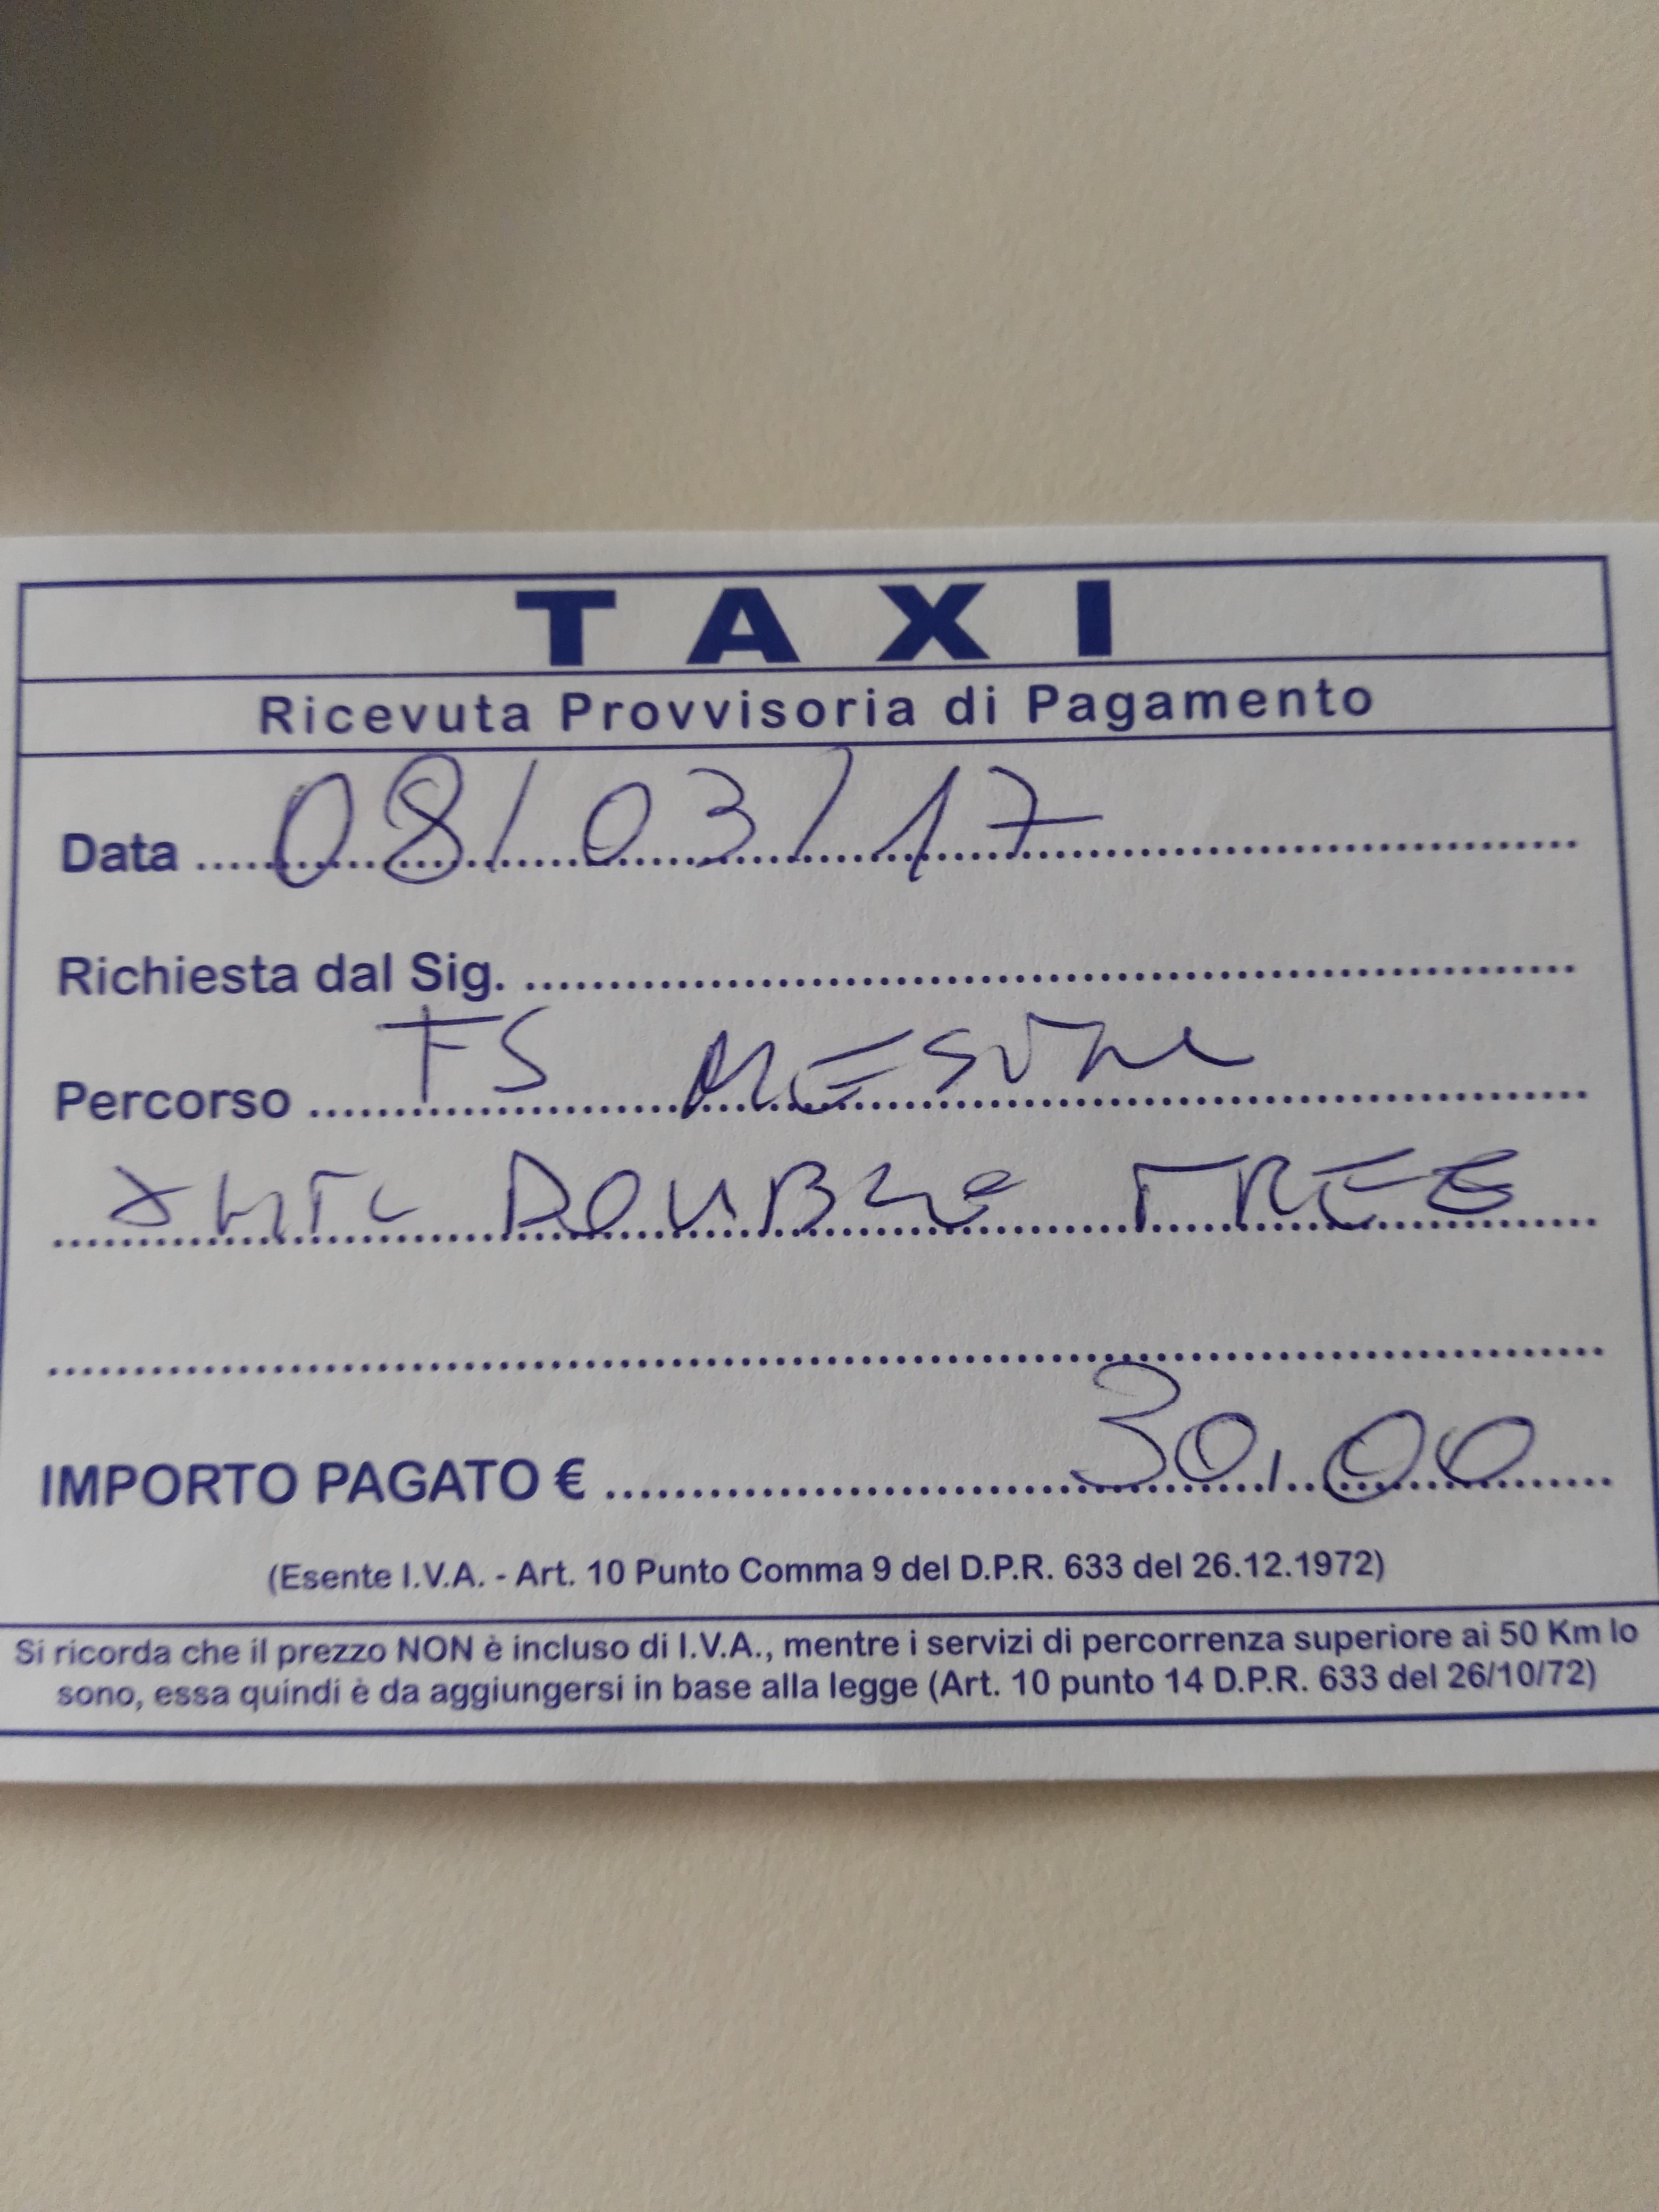 TAXI
Ricevuta Provvisoria di Pagamento
Data 08/03/17
Richiesta dal Sig.
Percorso FS MESTRE
DOUBLE TREE
IMPORTO PAGATO € 30,00
(Esente I.V.A. - Art. 10 Punto Comma 9 del D.P.R. 633 del 26.12.1972)
Si ricorda che il prezzo NON è incluso di I.V.A., mentre i servizi di percorrenza superiore ai 50 Km lo
sono, essa quindi è da aggiungersi in base alla legge (Art. 10 punto 14 D.P.R. 633 del 26/10/72)